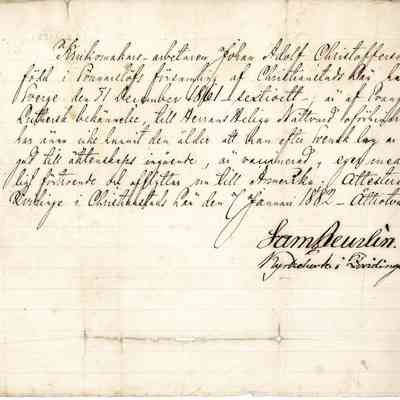 arbetaren Johan Adolf Christofferso
född i församling af Christianstads län
Sverge den 31 December 1861 - sextioett -, är af Evang
Luthersk bekännelse, till Herrans Heliga Nattvard oförhin
har ännu icke hunnit den ålder att han efter Svensk lag är
gud till äktenskaps ingående, är vaccinerad, eger med
förtroende och afflyttar nu till Amerika, Attestera
i Christianstads län den 7 Januari 1882 -
Sam
Kyrkoherde i